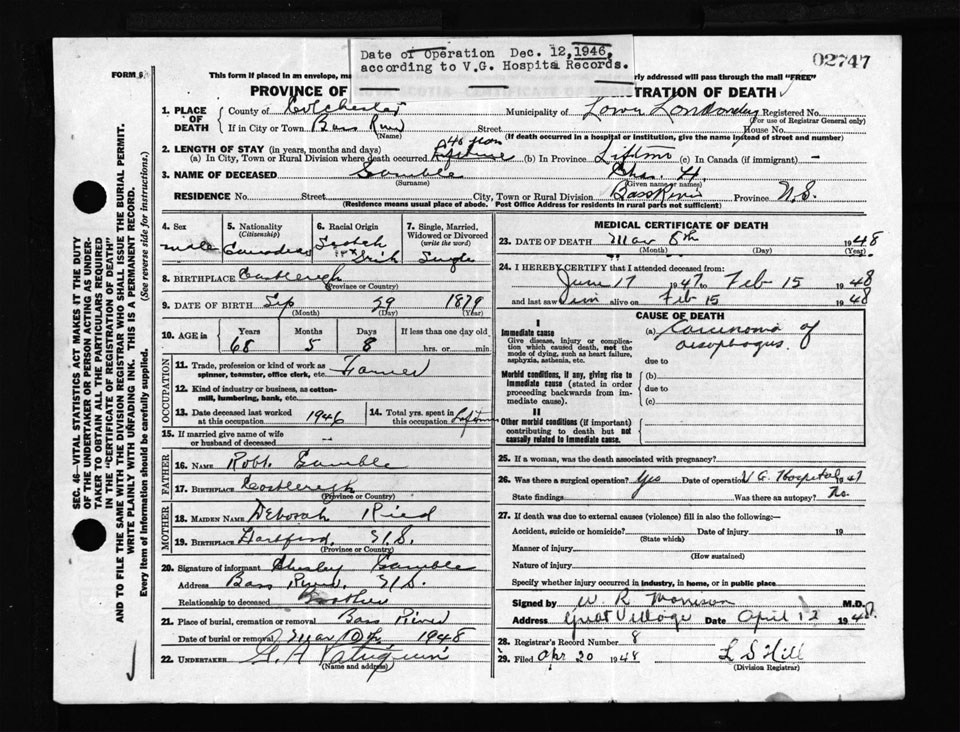 Date of Operation Dec. 12, 1946,
according to V.G. Hospital Records.
02747
FORM 6
This form if placed in an envelope, ma
rly addressed will pass through the mail "FREE"
PROVINCE OF
TRATION OF DEATH
1. PLACE OF DEATH
County of Colchester
Municipality of Lower Londonderry
Registered No.
(For use of Registrar General only)
If in City or Town Bass River Street House No.
(Name)
(If death occurred in a hospital or institution, give the name instead of street and number)
2. LENGTH OF STAY (in years, months and days)
(a) In City, Town or Rural Division where death occurred (b) In Province Lifetime (c) In Canada (if immigrant) -
3. NAME OF DECEASED Gamble Chas. H.
(Surname) (Given name or names)
RESIDENCE No. Street City, Town or Rural Division Bass River Province N.S.
(Residence means usual place of abode. Post Office Address for residents in rural parts not sufficient)
4. Sex
male
5. Nationality
(Citizenship)
Canadian
6. Racial Origin
Scotch
Irish
7. Single, Married, Widowed or Divorced
(write the word)
Single
8. BIRTHPLACE Castlereagh
(Province or Country)
9. DATE OF BIRTH Sep 29 1879
(Month) (Day) (Year)
10. AGE in
Years Months Days If less than one day old
68 5 8 hrs. or min.
OCCUPATION
11. Trade, profession or kind of work as
spinner, teamster, office clerk, etc. Farmer
12. Kind of industry or business, as cotton-
mill, lumbering, bank, etc.
13. Date deceased last worked
at this occupation 1946
14. Total yrs. spent in
this occupation Lifetime
15. If married give name of wife
or husband of deceased --
FATHER
16. NAME Robt. Gamble
17. BIRTHPLACE Castlereagh
(Province or Country)
MOTHER
18. MAIDEN NAME Deborah Ried
19. BIRTHPLACE Hartford N.S.
(Province or Country)
20. Signature of informant Chesley Gamble
Address Bass River, N.S.
Relationship to deceased Brother
21. Place of burial, cremation or removal Bass River
Date of burial or removal Mar 10th 1948
22. UNDERTAKER G. H.
(Name and address)
MEDICAL CERTIFICATE OF DEATH
23. DATE OF DEATH Mar 8th 1948
(Month) (Day) (Year)
24. I HEREBY CERTIFY that I attended deceased from:
June 17 1947 to Feb 15 1948
and last saw him alive on Feb 15 1948
CAUSE OF DEATH
I
Immediate cause
Give disease, injury or complication which caused death, not the mode of dying, such as heart failure, asphyxia, asthenia, etc.
(a) Carcinoma of
oesophagus.
due to
Morbid conditions, if any, giving rise to immediate cause (stated in order proceeding backwards from immediate cause).
(b)
due to
(c)
II
Other morbid conditions (if important) contributing to death but not causally related to immediate cause.
25. If a woman, was the death associated with pregnancy?
26. Was there a surgical operation? Yes Date of operation V G. Hospital 47
State findings Was there an autopsy? No.
27. If death was due to external causes (violence) fill in also the following:-
Accident, suicide or homicide? Date of injury 19
(State which)
Manner of injury
(How sustained)
Nature of injury
Specify whether injury occurred in industry, in home, or in public place
Signed by W R Morrison M.D.
Address Great Village Date April 12 1948
28. Registrar's Record Number 8
29. Filed Apr 20 1948 L S Hill
(Division Registrar)
SEC. 46—VITAL STATISTICS ACT MAKES IT THE DUTY
OF THE UNDERTAKER OR PERSON ACTING AS UNDER-
TAKER TO OBTAIN ALL THE PARTICULARS REQUIRED
IN THE "CERTIFICATE OF REGISTRATION OF DEATH"
AND TO FILE THE SAME WITH THE DIVISION REGISTRAR WHO SHALL ISSUE THE BURIAL PERMIT.
WRITE PLAINLY WITH UNFADING INK. THIS IS A PERMANENT RECORD.
Every item of information should be carefully supplied. (See reverse side for instructions.)